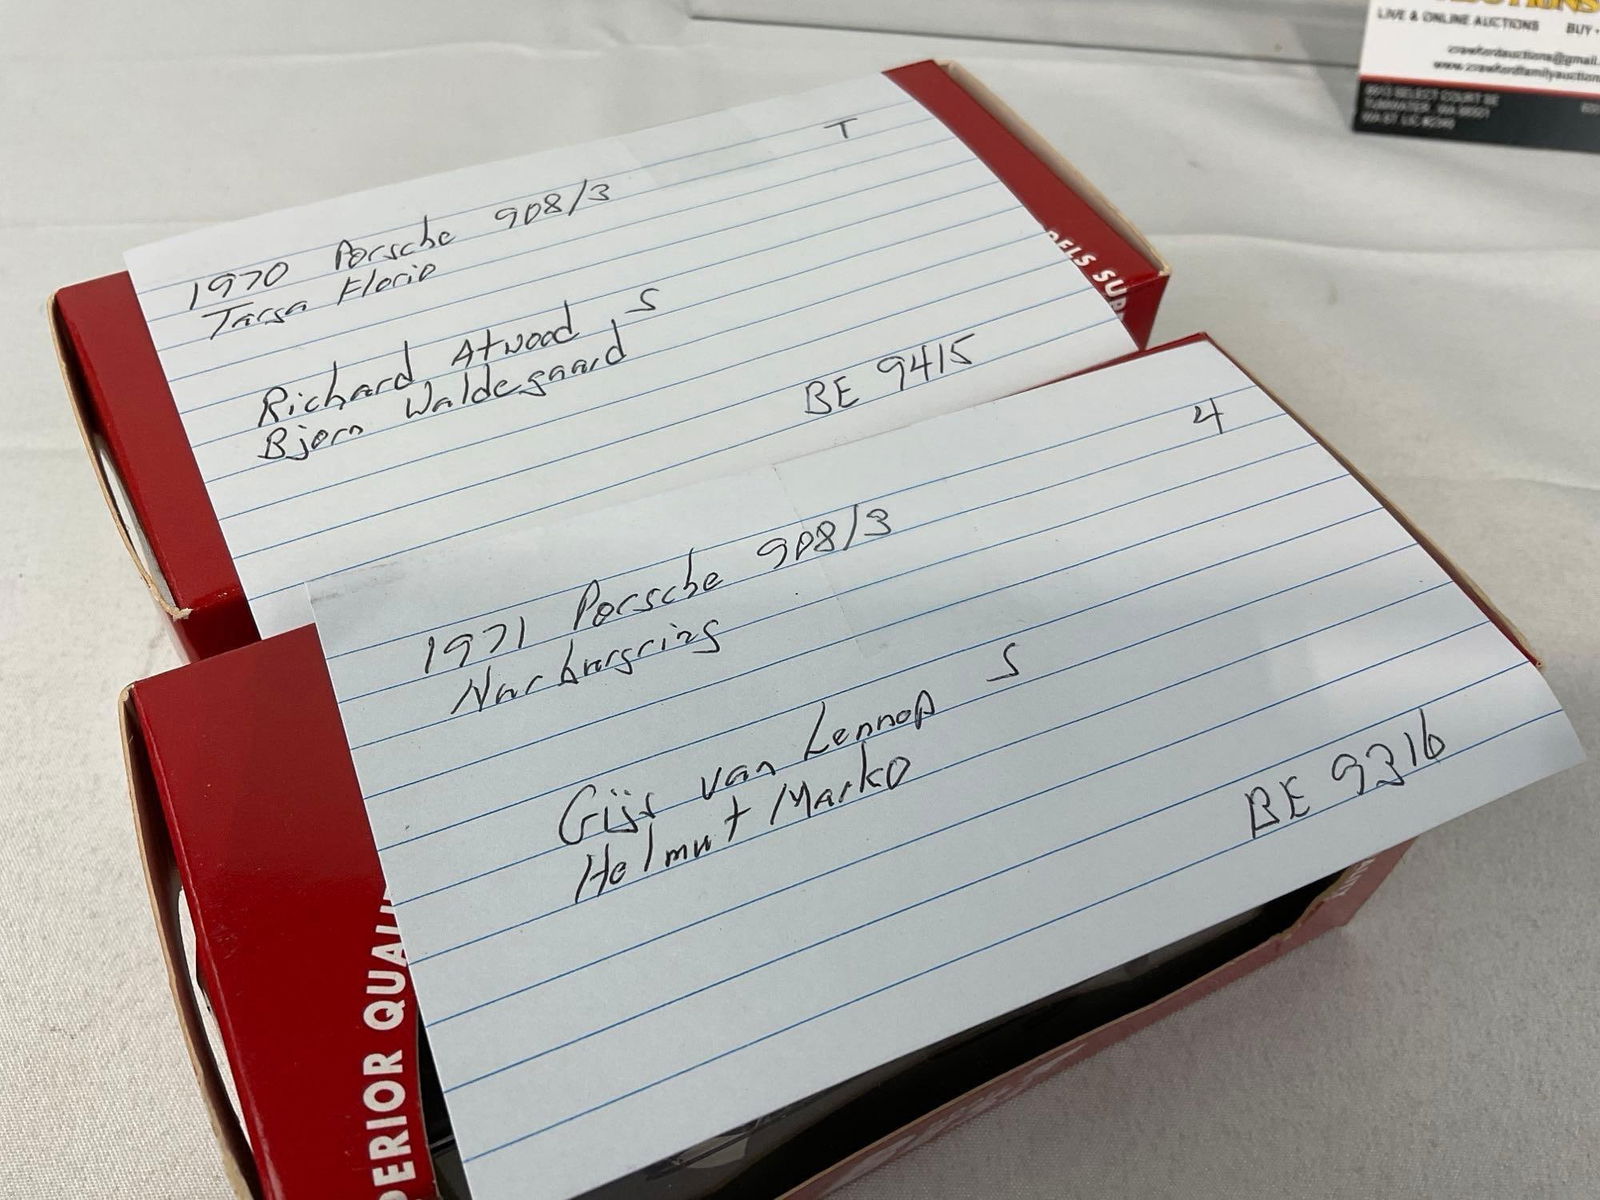 LIVE & ONLINE AUCTIONS BUY
crawfordauctions@gmail.
www.crawfordfamilyauction
T
1970 Porsche 908/3
Targa Florio
S
Richard Atwood
Bjorn Waldegaard
BE 9415
DELS SUP
4
1971 Porsche 908/3
Nurburgring
S
Gijs van Lennop
Helmut Marko
BE 9316
PERIOR QUALI